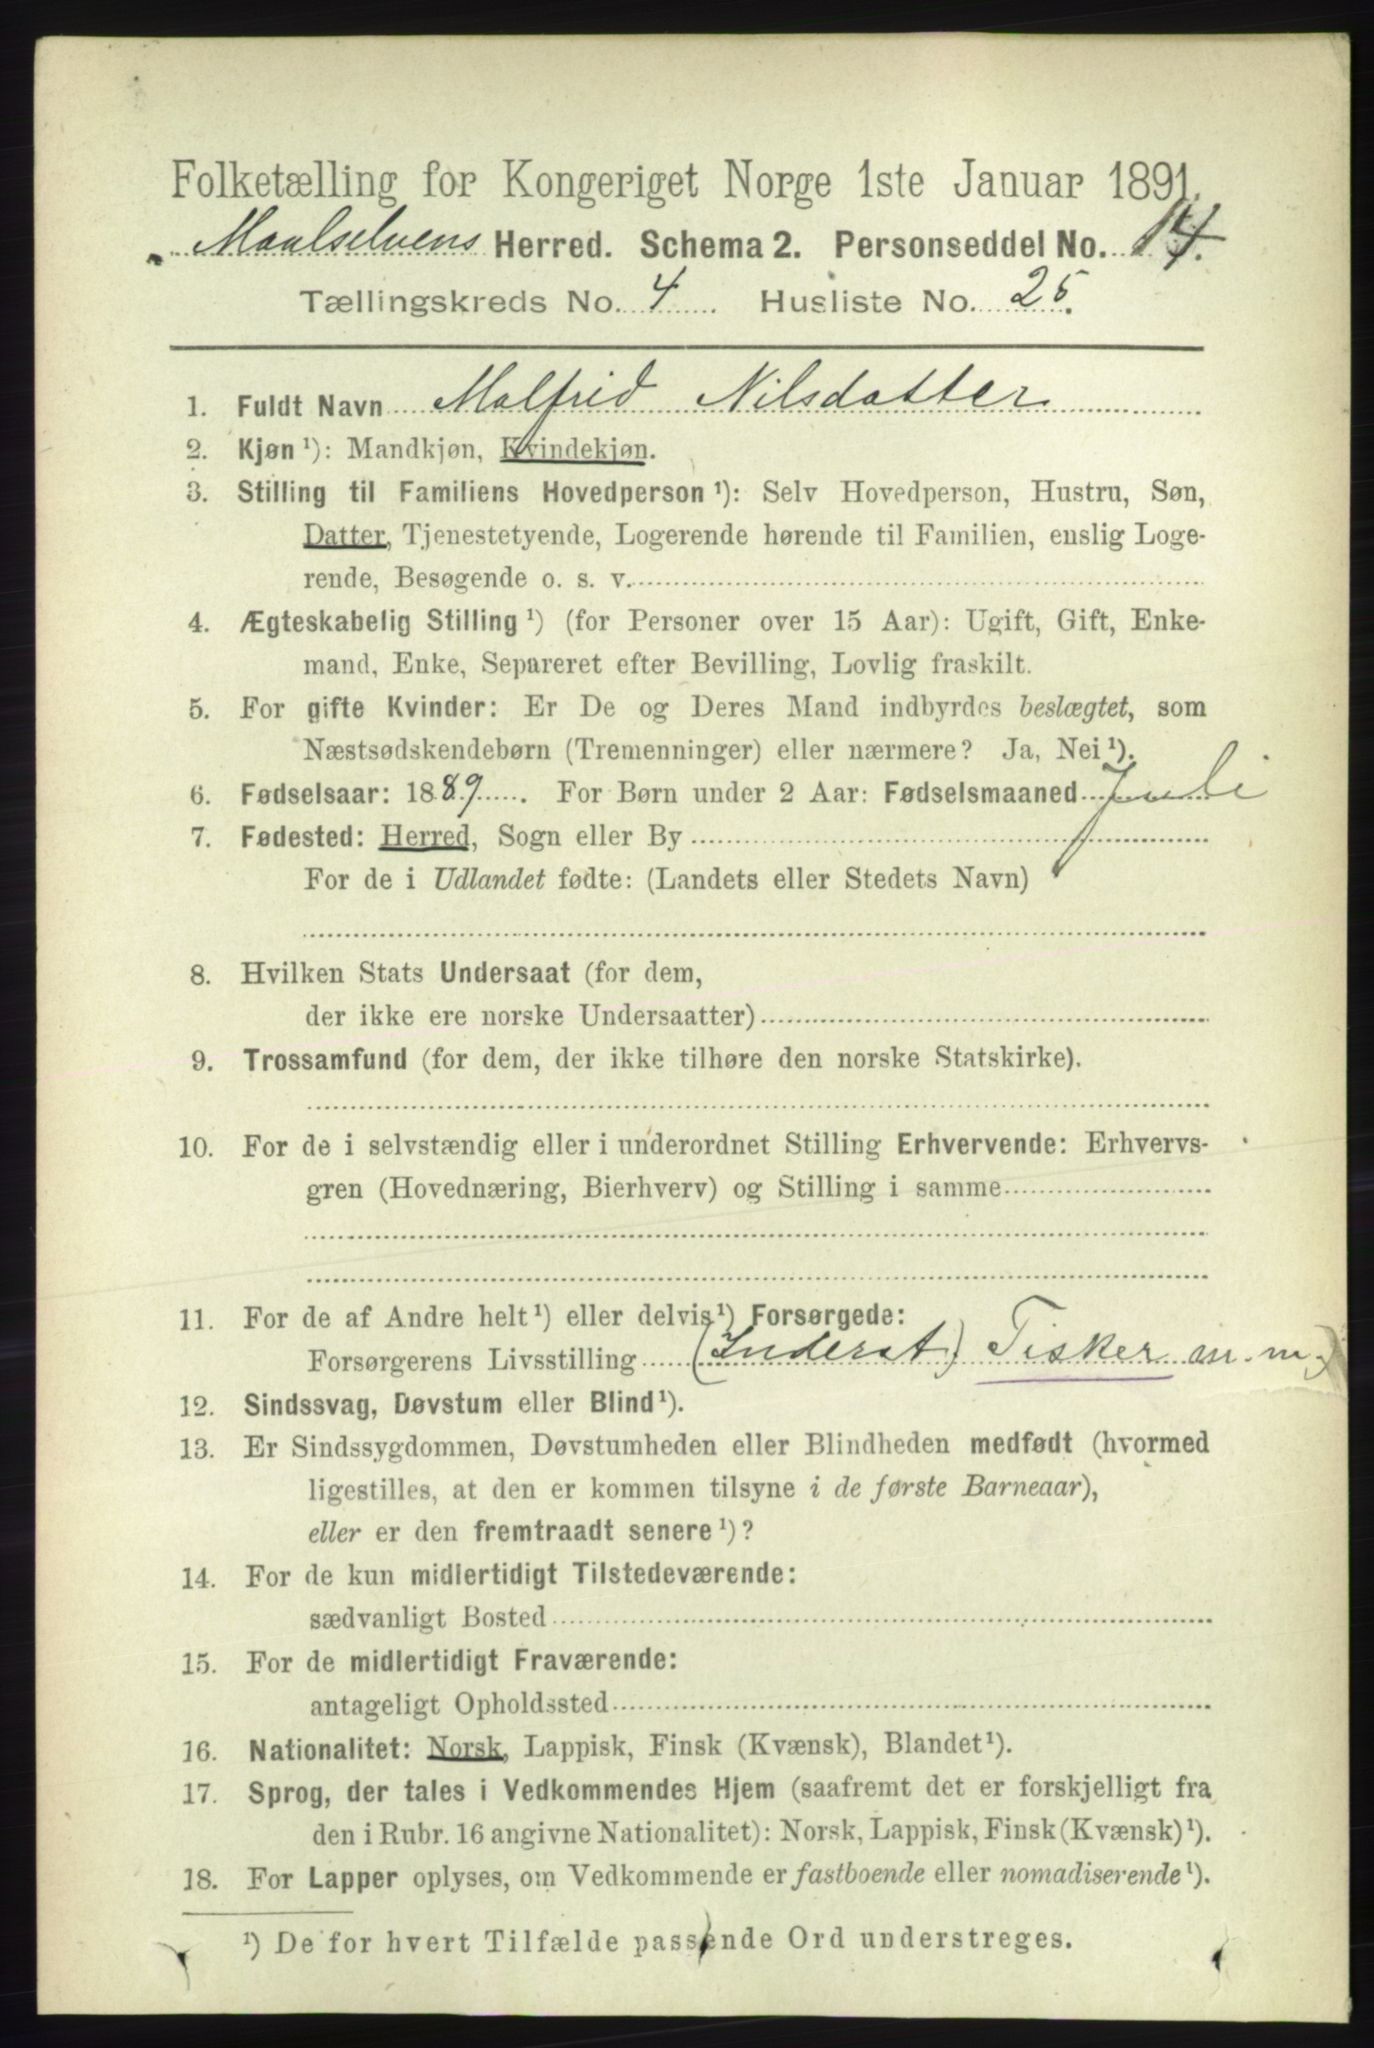 Folketælling for Kongeriget Norge 1ste Januar 1891.
Maalselvens Herred. Schema 2. Personseddel No. 14.
Tællingskreds No. 4 Husliste No. 25.
1. Fuldt Navn Malfrid Nilsdatter
2. Kjøn ¹): Mandkjøn, Kvindekjøn.
3. Stilling til Familiens Hovedperson ¹): Selv Hovedperson, Hustru, Søn,
Datter, Tjenestetyende, Logerende hørende til Familien, enslig Loge-
rende, Besøgende o. s. v.
4. Ægteskabelig Stilling ¹) (for Personer over 15 Aar): Ugift, Gift, Enke-
mand, Enke, Separeret efter Bevilling, Lovlig fraskilt.
5. For gifte Kvinder: Er De og Deres Mand indbyrdes beslægtet, som
Næstsødskendebørn (Tremenninger) eller nærmere? Ja, Nei ¹).
6. Fødselsaar: 1889. For Børn under 2 Aar: Fødselsmaaned Juli
7. Fødested: Herred, Sogn eller By
For de i Udlandet fødte: (Landets eller Stedets Navn)
8. Hvilken Stats Undersaat (for dem,
der ikke ere norske Undersaatter)
9. Trossamfund (for dem, der ikke tilhøre den norske Statskirke).
10. For de i selvstændig eller i underordnet Stilling Erhvervende: Erhvervs-
gren (Hovednæring, Bierhverv) og Stilling i samme
11. For de af Andre helt ¹) eller delvis ¹) Forsørgede:
Forsørgerens Livsstilling (Inderst) Fisker m. m.)
12. Sindssvag, Døvstum eller Blind ¹).
13. Er Sindssygdommen, Døvstumheden eller Blindheden medfødt (hvormed
ligestilles, at den er kommen tilsyne i de første Barneaar),
eller er den fremtraadt senere ¹)?
14. For de kun midlertidigt Tilstedeværende:
sædvanligt Bosted
15. For de midlertidigt Fraværende:
antageligt Opholdssted
16. Nationalitet: Norsk, Lappisk, Finsk (Kvænsk), Blandet ¹).
17. Sprog, der tales i Vedkommendes Hjem (saafremt det er forskjelligt fra
den i Rubr. 16 angivne Nationalitet): Norsk, Lappisk, Finsk (Kvænsk) ¹).
18. For Lapper oplyses, om Vedkommende er fastboende eller nomadiserende ¹).
¹) De for hvert Tilfælde passende Ord understreges.